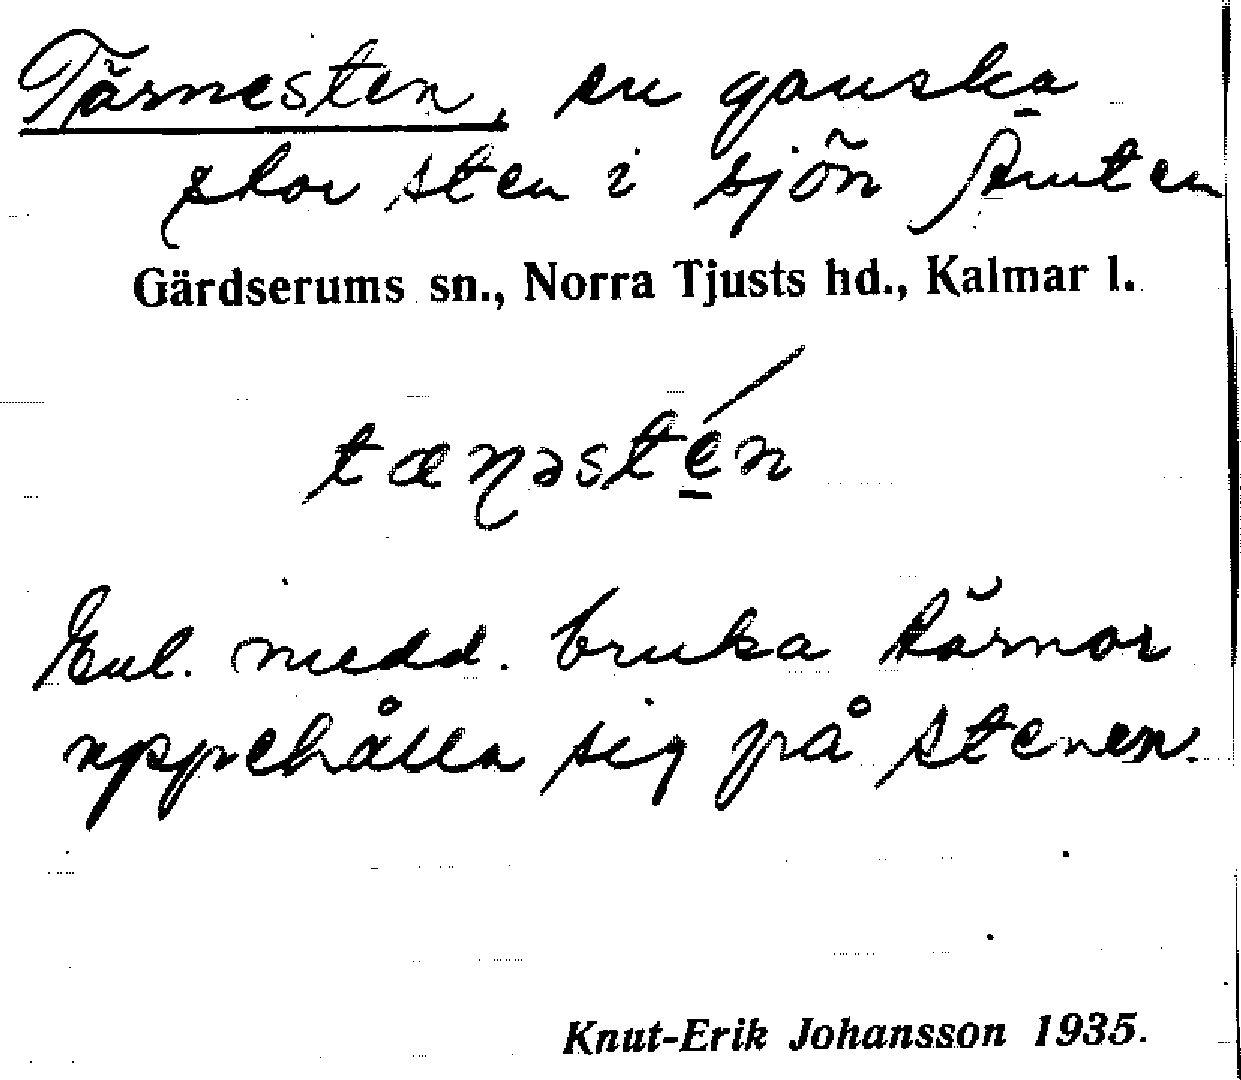 Tärnesten, en ganska
stor sten i sjön Åmten
Gärdserums sn., Norra Tjusts hd., Kalmar l.
tæɳəstén
Enl. medd. bruka tärnor
uppehålla sig på stenen.
Knut-Erik Johansson 1935.